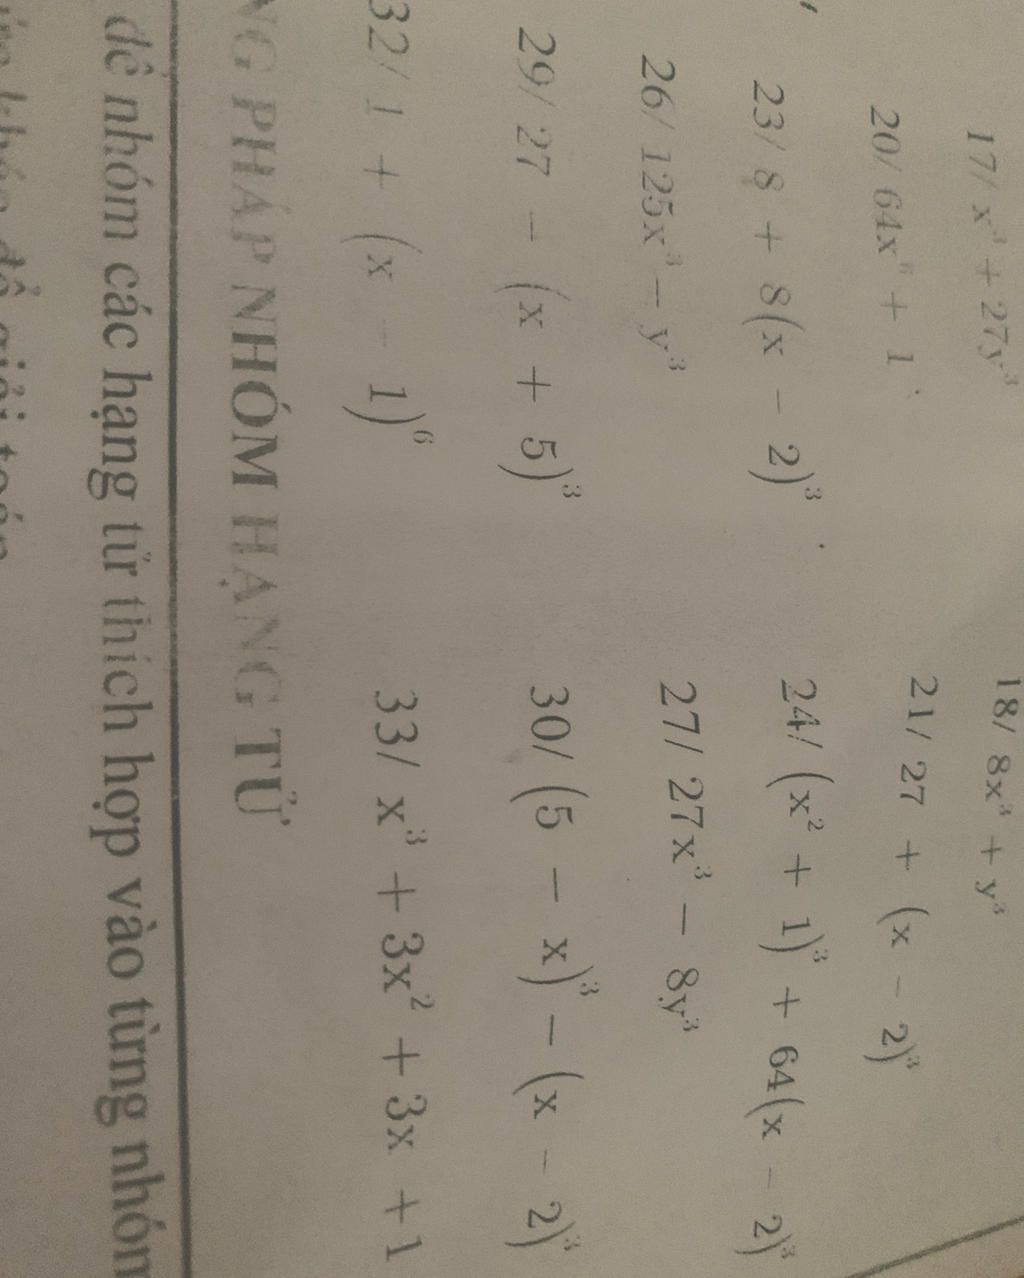 17/ x³ + 27y³ 18/ 8x³ + y³
20/ 64x⁶ + 1 21/ 27 + (x - 2)³
23/ 8 + 8(x - 2)³ 24/ (x² + 1)³ + 64(x - 2)³
26/ 125x³ - y³ 27/ 27x³ - 8y³
29/ 27 - (x + 5)³ 30/ (5 - x)³ - (x - 2)³
32/ 1 + (x - 1)⁶ 33/ x³ + 3x² + 3x + 1
NG PHÁP NHÓM HẠNG TỬ
để nhóm các hạng tử thích hợp vào từng nhóm